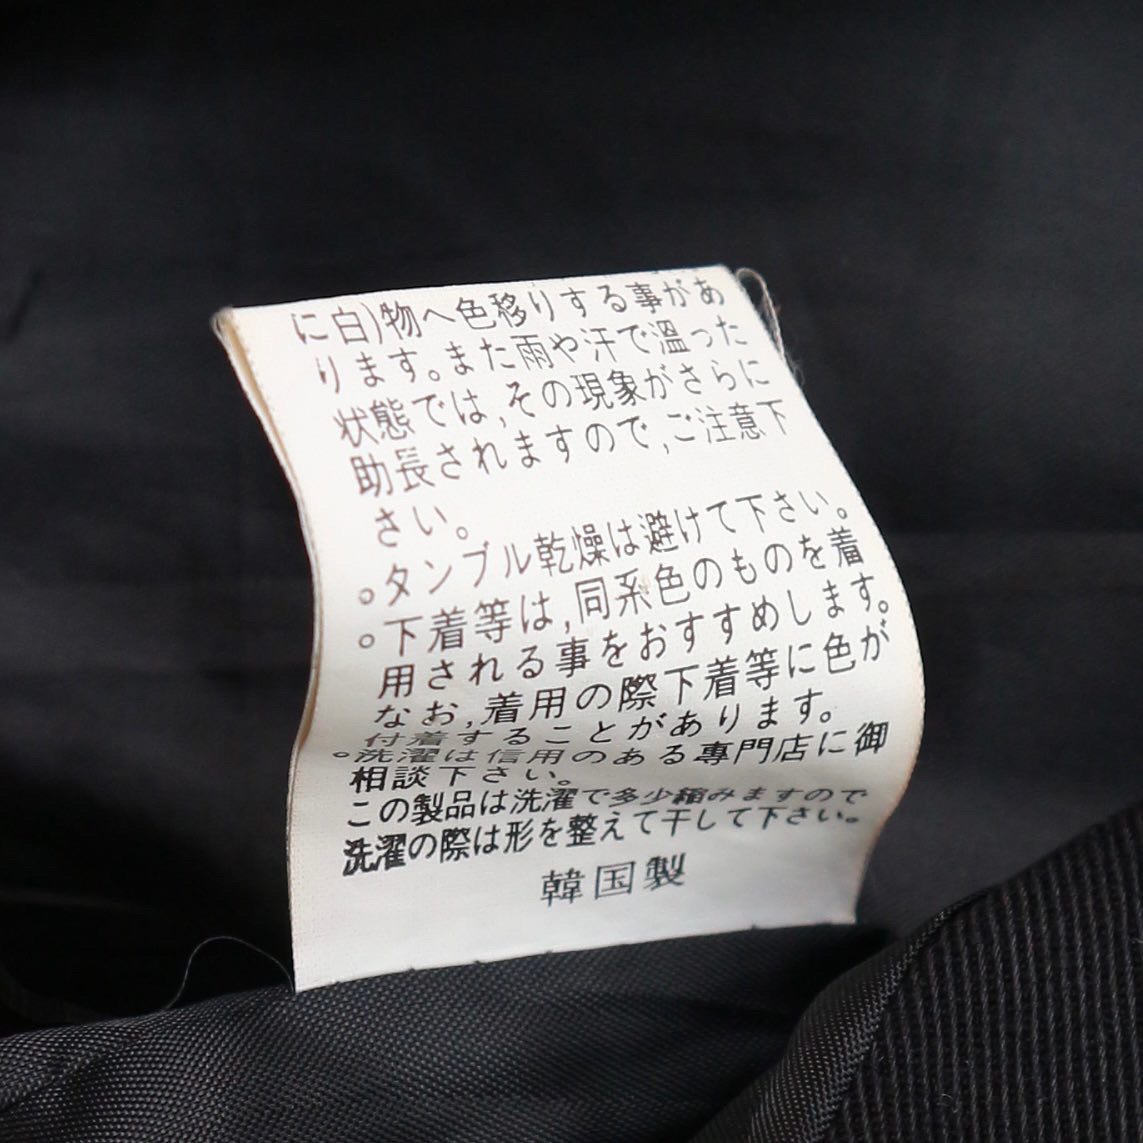 に白)物へ色移りする事があ
ります。また雨や汗で溫った
状態では,その現象がさらに
助長されますので,ご注意下
さい。
。タンブル乾燥は避けて下さい。
。下着等は,同系色のものを着
用される事をおすすめします。
なお,着用の際下着等に色が
付着することがあります。
。洗濯は信用のある専門店に御
相談下さい。
この製品は洗濯で多少縮みますので
洗濯の際は形を整えて干して下さい。
韓国製